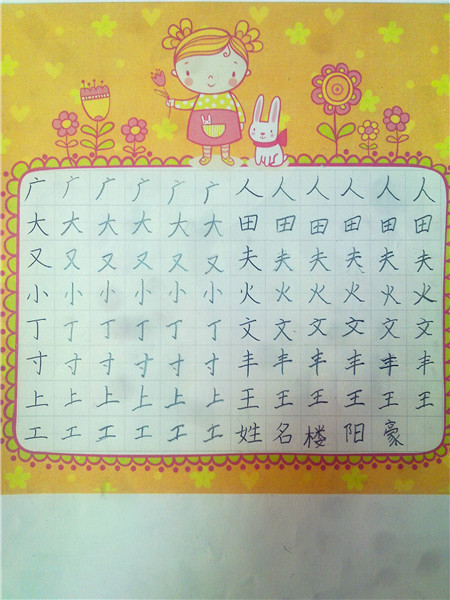 广广广广广广人人人人人人
大大大大大大田田田田田田
又又又又又又夫夫夫夫夫夫
小小小小小小火火火火火火
丁丁丁丁丁丁文文文文文文
寸寸寸寸寸寸丰丰丰丰丰丰
上上上上上上王王王王王王
工工工工工工姓名楼阳豪